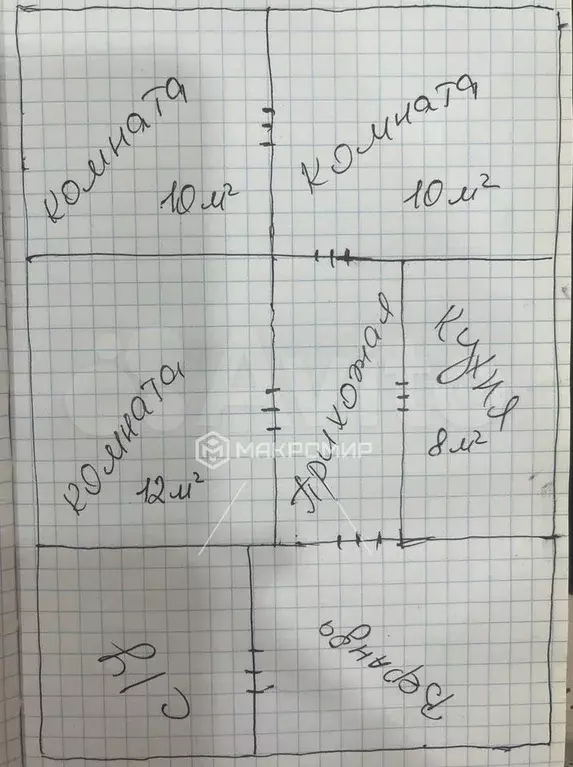 комната
10 м²
комната
10 м²
комната
12 м²
прихожая
кухня
8 м²
МАКРОМИР
с/у
Веранда